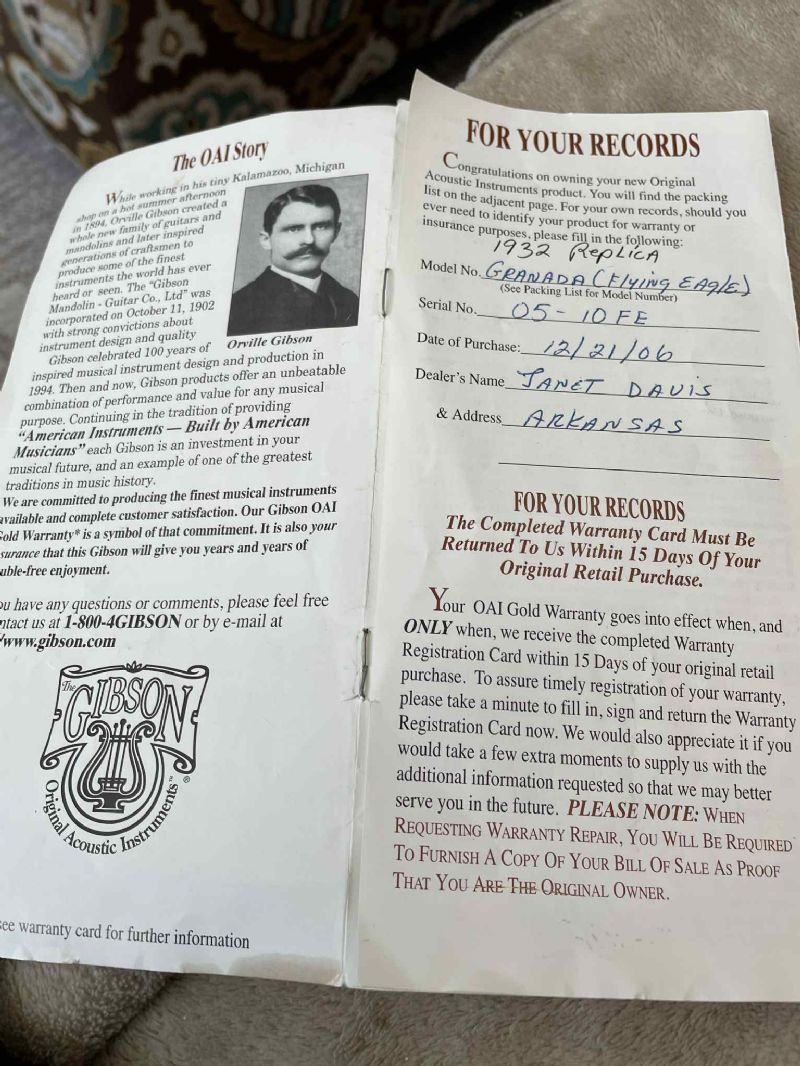 The OAI Story
While working in his tiny Kalamazoo, Michigan
shop on a hot summer afternoon
in 1894, Orville Gibson created a
whole new family of guitars and
mandolins and later inspired
generations of craftsmen to
produce some of the finest
instruments the world has ever
heard or seen. The "Gibson
Mandolin - Guitar Co., Ltd" was
incorporated on October 11, 1902
with strong convictions about
instrument design and quality
Orville Gibson
Gibson celebrated 100 years of
inspired musical instrument design and production in
1994. Then and now, Gibson products offer an unbeatable
combination of performance and value for any musical
purpose. Continuing in the tradition of providing
"American Instruments — Built by American
Musicians" each Gibson is an investment in your
musical future, and an example of one of the greatest
traditions in music history.
We are committed to producing the finest musical instruments
available and complete customer satisfaction. Our Gibson OAI
Gold Warranty* is a symbol of that commitment. It is also your
surance that this Gibson will give you years and years of
uble-free enjoyment.
ou have any questions or comments, please feel free
ntact us at 1-800-4GIBSON or by e-mail at
/www.gibson.com
The
GIBSON
Original Acoustic Instruments™ ®
see warranty card for further information
FOR YOUR RECORDS
Congratulations on owning your new Original
Acoustic Instruments product. You will find the packing
list on the adjacent page. For your own records, should you
ever need to identify your product for warranty or
insurance purposes, please fill in the following:
1932 REPLICA
Model No. GRANADA (Flying EAglE)
(See Packing List for Model Number)
Serial No. 05-10FE
Date of Purchase: 12/21/06
Dealer's Name JANET DAVIS
& Address ARKANSAS
FOR YOUR RECORDS
The Completed Warranty Card Must Be
Returned To Us Within 15 Days Of Your
Original Retail Purchase.
Your OAI Gold Warranty goes into effect when, and
ONLY when, we receive the completed Warranty
Registration Card within 15 Days of your original retail
purchase. To assure timely registration of your warranty,
please take a minute to fill in, sign and return the Warranty
Registration Card now. We would also appreciate it if you
would take a few extra moments to supply us with the
additional information requested so that we may better
serve you in the future. PLEASE NOTE: WHEN
REQUESTING WARRANTY REPAIR, YOU WILL BE REQUIRED
TO FURNISH A COPY OF YOUR BILL OF SALE AS PROOF
THAT YOU ARE THE ORIGINAL OWNER.